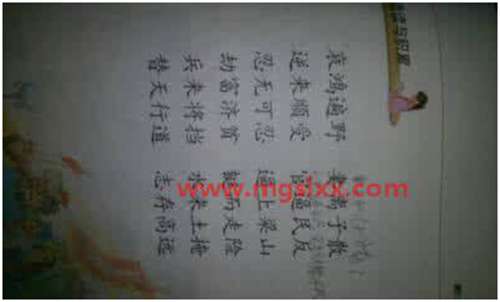 哀鸿遍野 妻离子散
逆来顺受 官逼民反
忍无可忍 逼上梁山
劫富济贫 铤而走险
兵来将挡 水来土掩
替天行道 志存高远
www.mgslxx.com